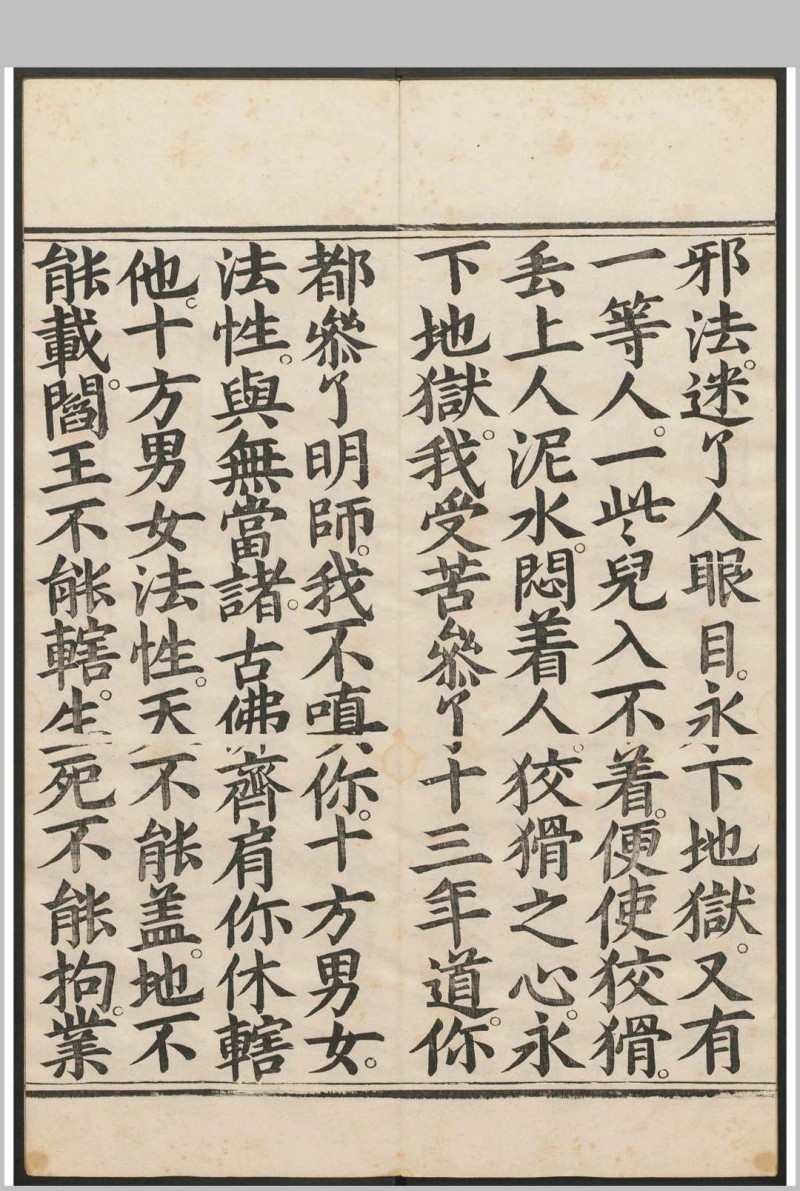 邪法。迷了人眼目。永下地獄。又有
一等人。一些兒入不着。便使狡猾。
丟上人泥水。悶着人。狡猾之心。永
下地獄。我受苦叅了十三年道。你
都叅了明師。我不嗔你。十方男女。
法性。與無當諸。古佛齊肩你休轄
他。十方男女法性。天不能盖。地不
能載。閻王不能轄。生死不能拘。業